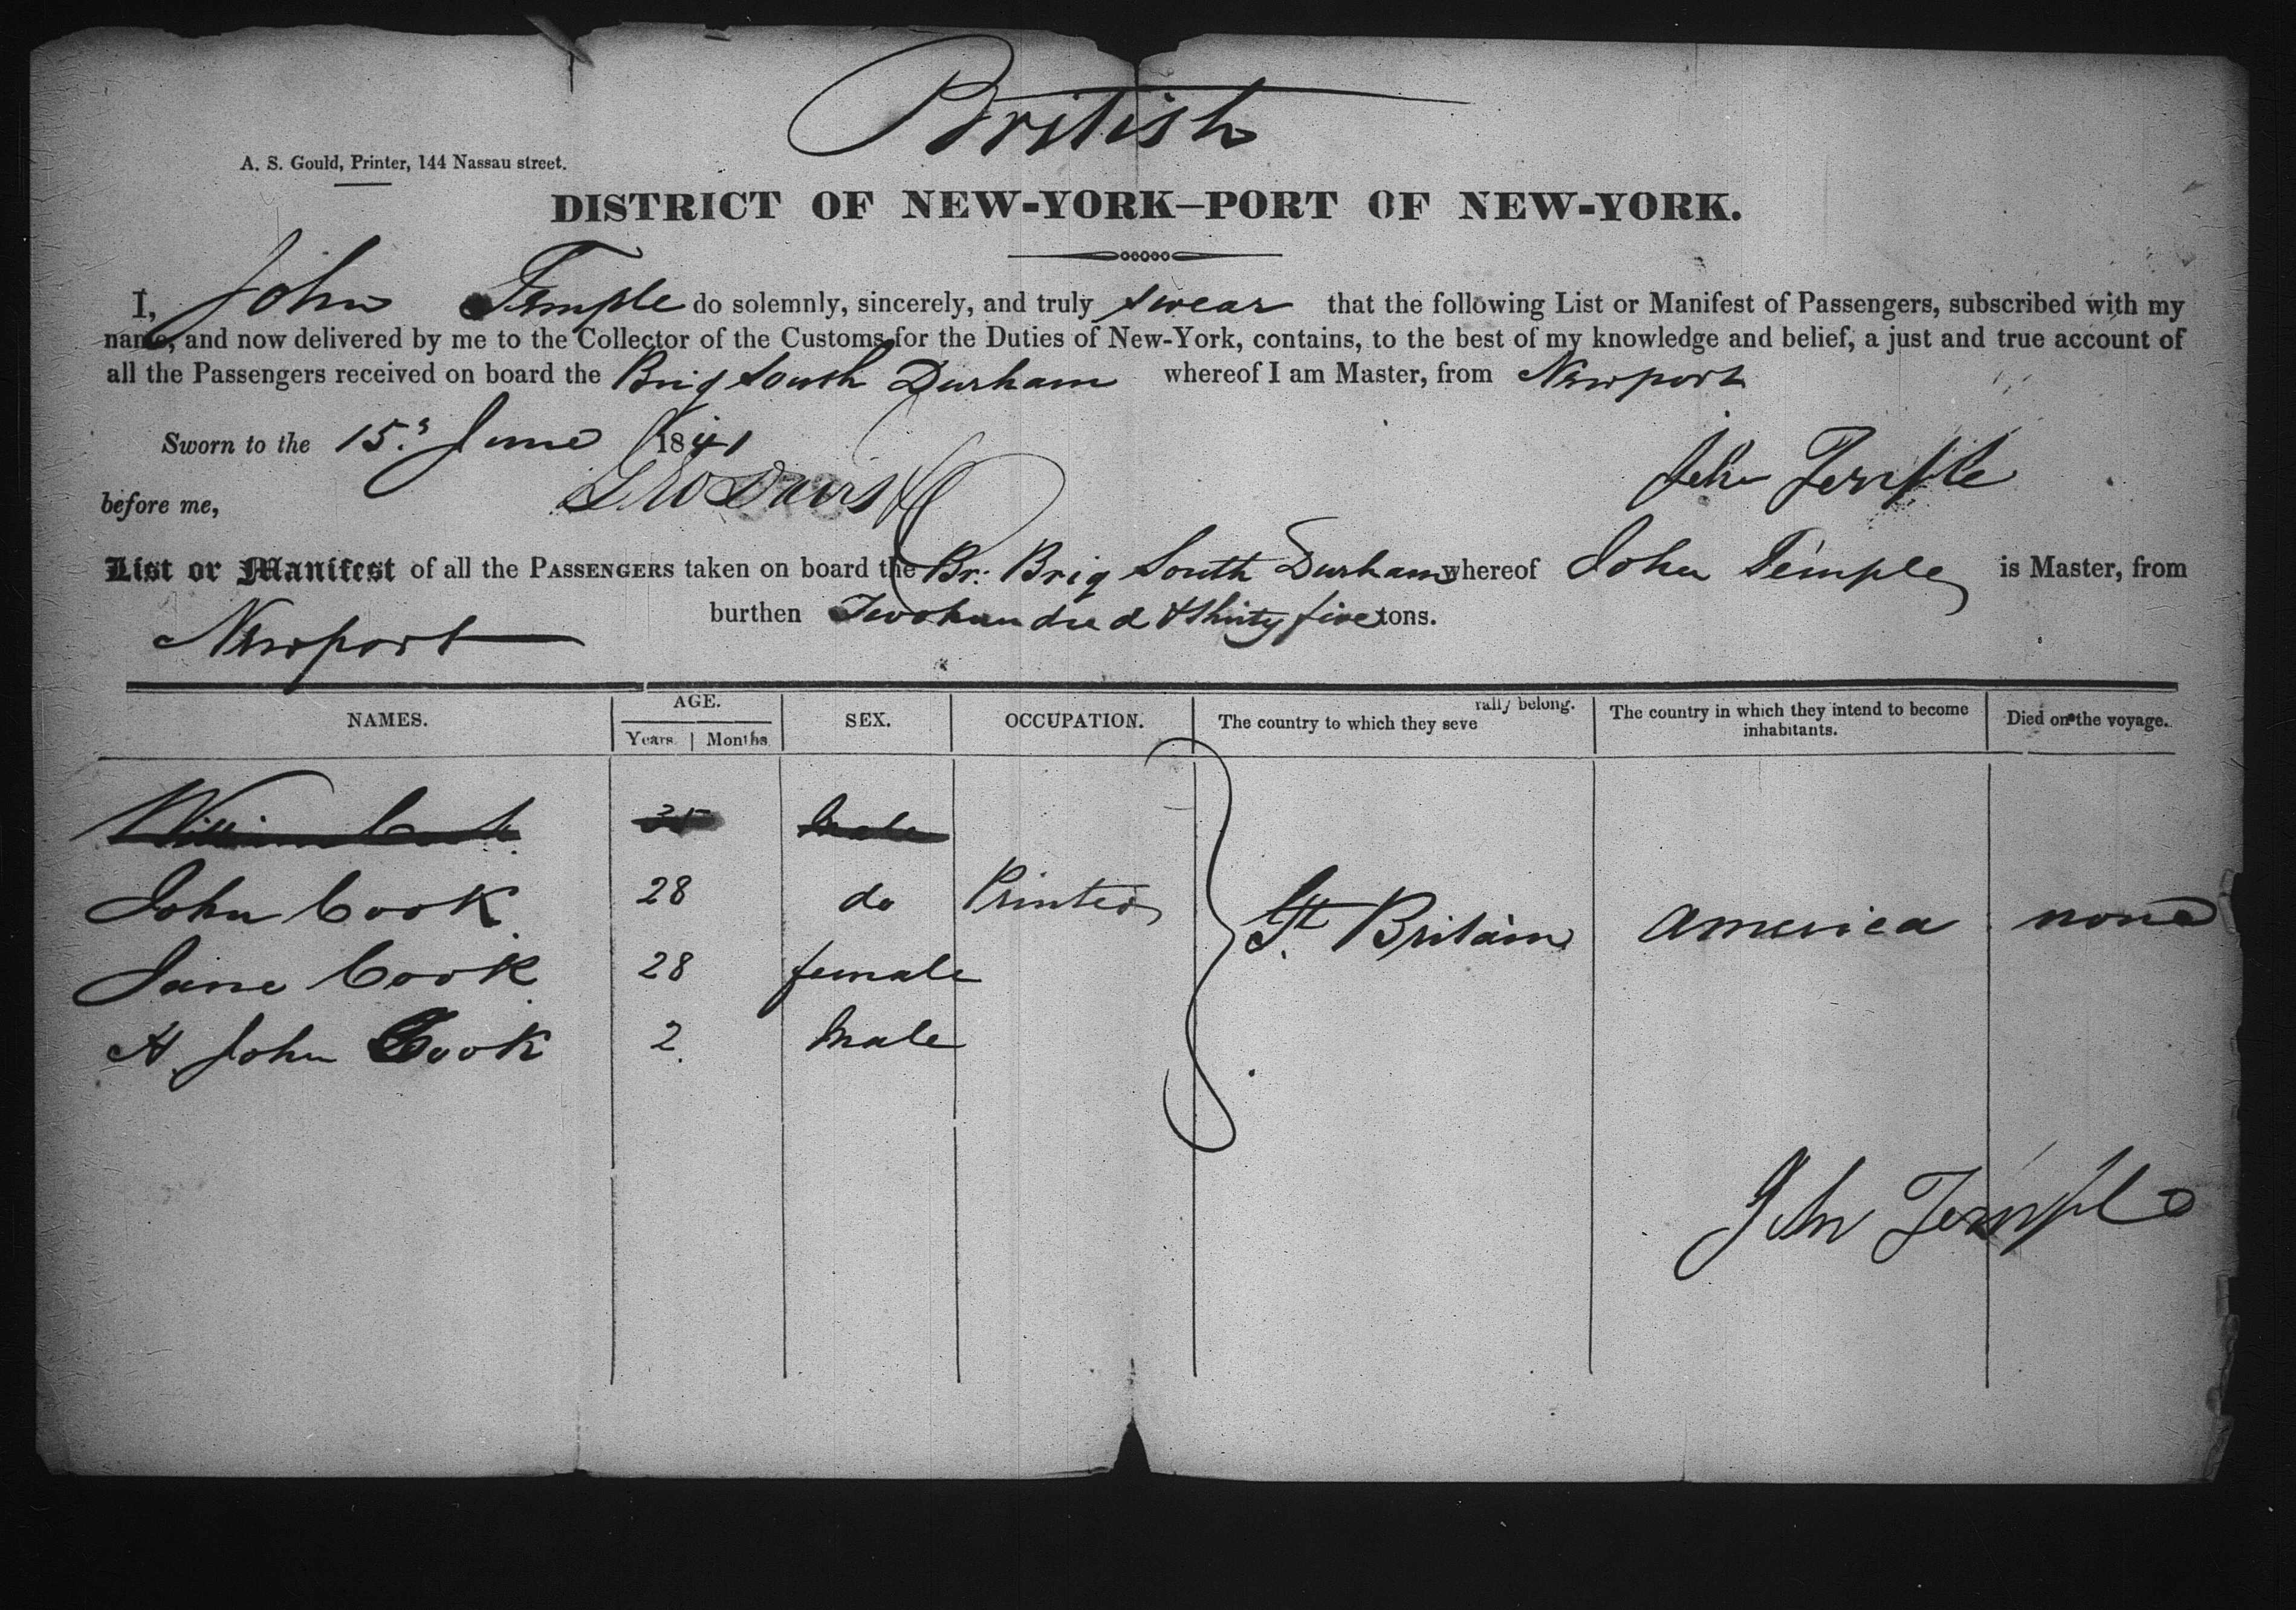 British
A. S. Gould, Printer, 144 Nassau street.
DISTRICT OF NEW-YORK—PORT OF NEW-YORK.
I, John Temple do solemnly, sincerely, and truly swear that the following List or Manifest of Passengers, subscribed with my
name, and now delivered by me to the Collector of the Customs for the Duties of New-York, contains, to the best of my knowledge and belief, a just and true account of
all the Passengers received on board the Brig South Durham whereof I am Master, from Newport
Sworn to the 15. June 1841
before me, John Temple
List or Manifest of all the PASSENGERS taken on board the Br. Brig South Durham whereof John Temple is Master, from
Newport burthen Two hundred & thirty five tons.
NAMES. AGE. Years Months SEX. OCCUPATION. The country to which they severally belong. The country in which they intend to become inhabitants. Died on the voyage.
William Cook 35 Male
John Cook 28 do Printer Gt. Britain America none
Jane Cook 28 female
H John Cook 2. Male
John Temple